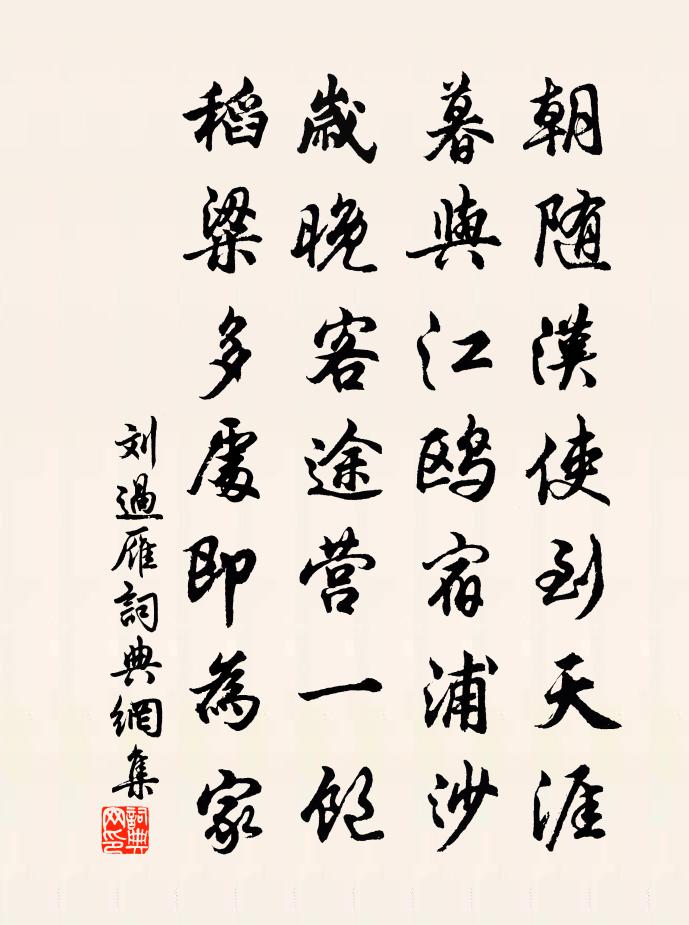 朝随漢使到天涯
暮與江鸥宿浦沙
歲晚客途营一飽
稻粱多處即為家
刘過雁詞典網集
詞典网印